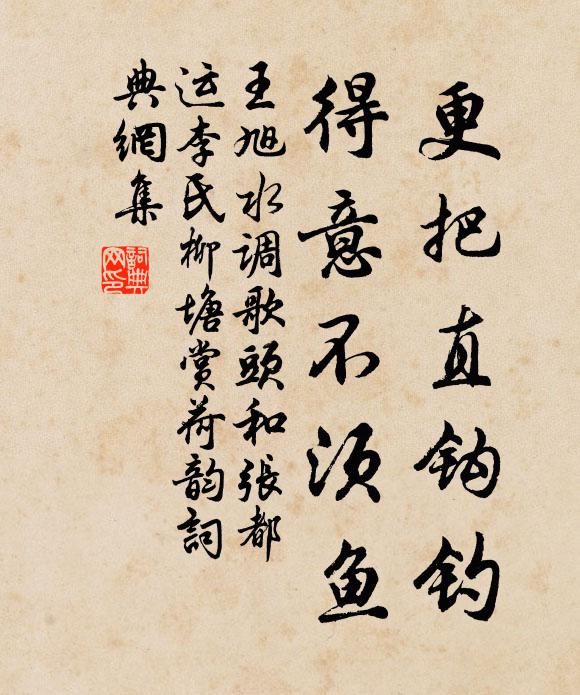 更把直钩钓
得意不须鱼
王旭水调歌頭和張都
运李氏柳塘赏荷韵詞
典網集
詞典網印